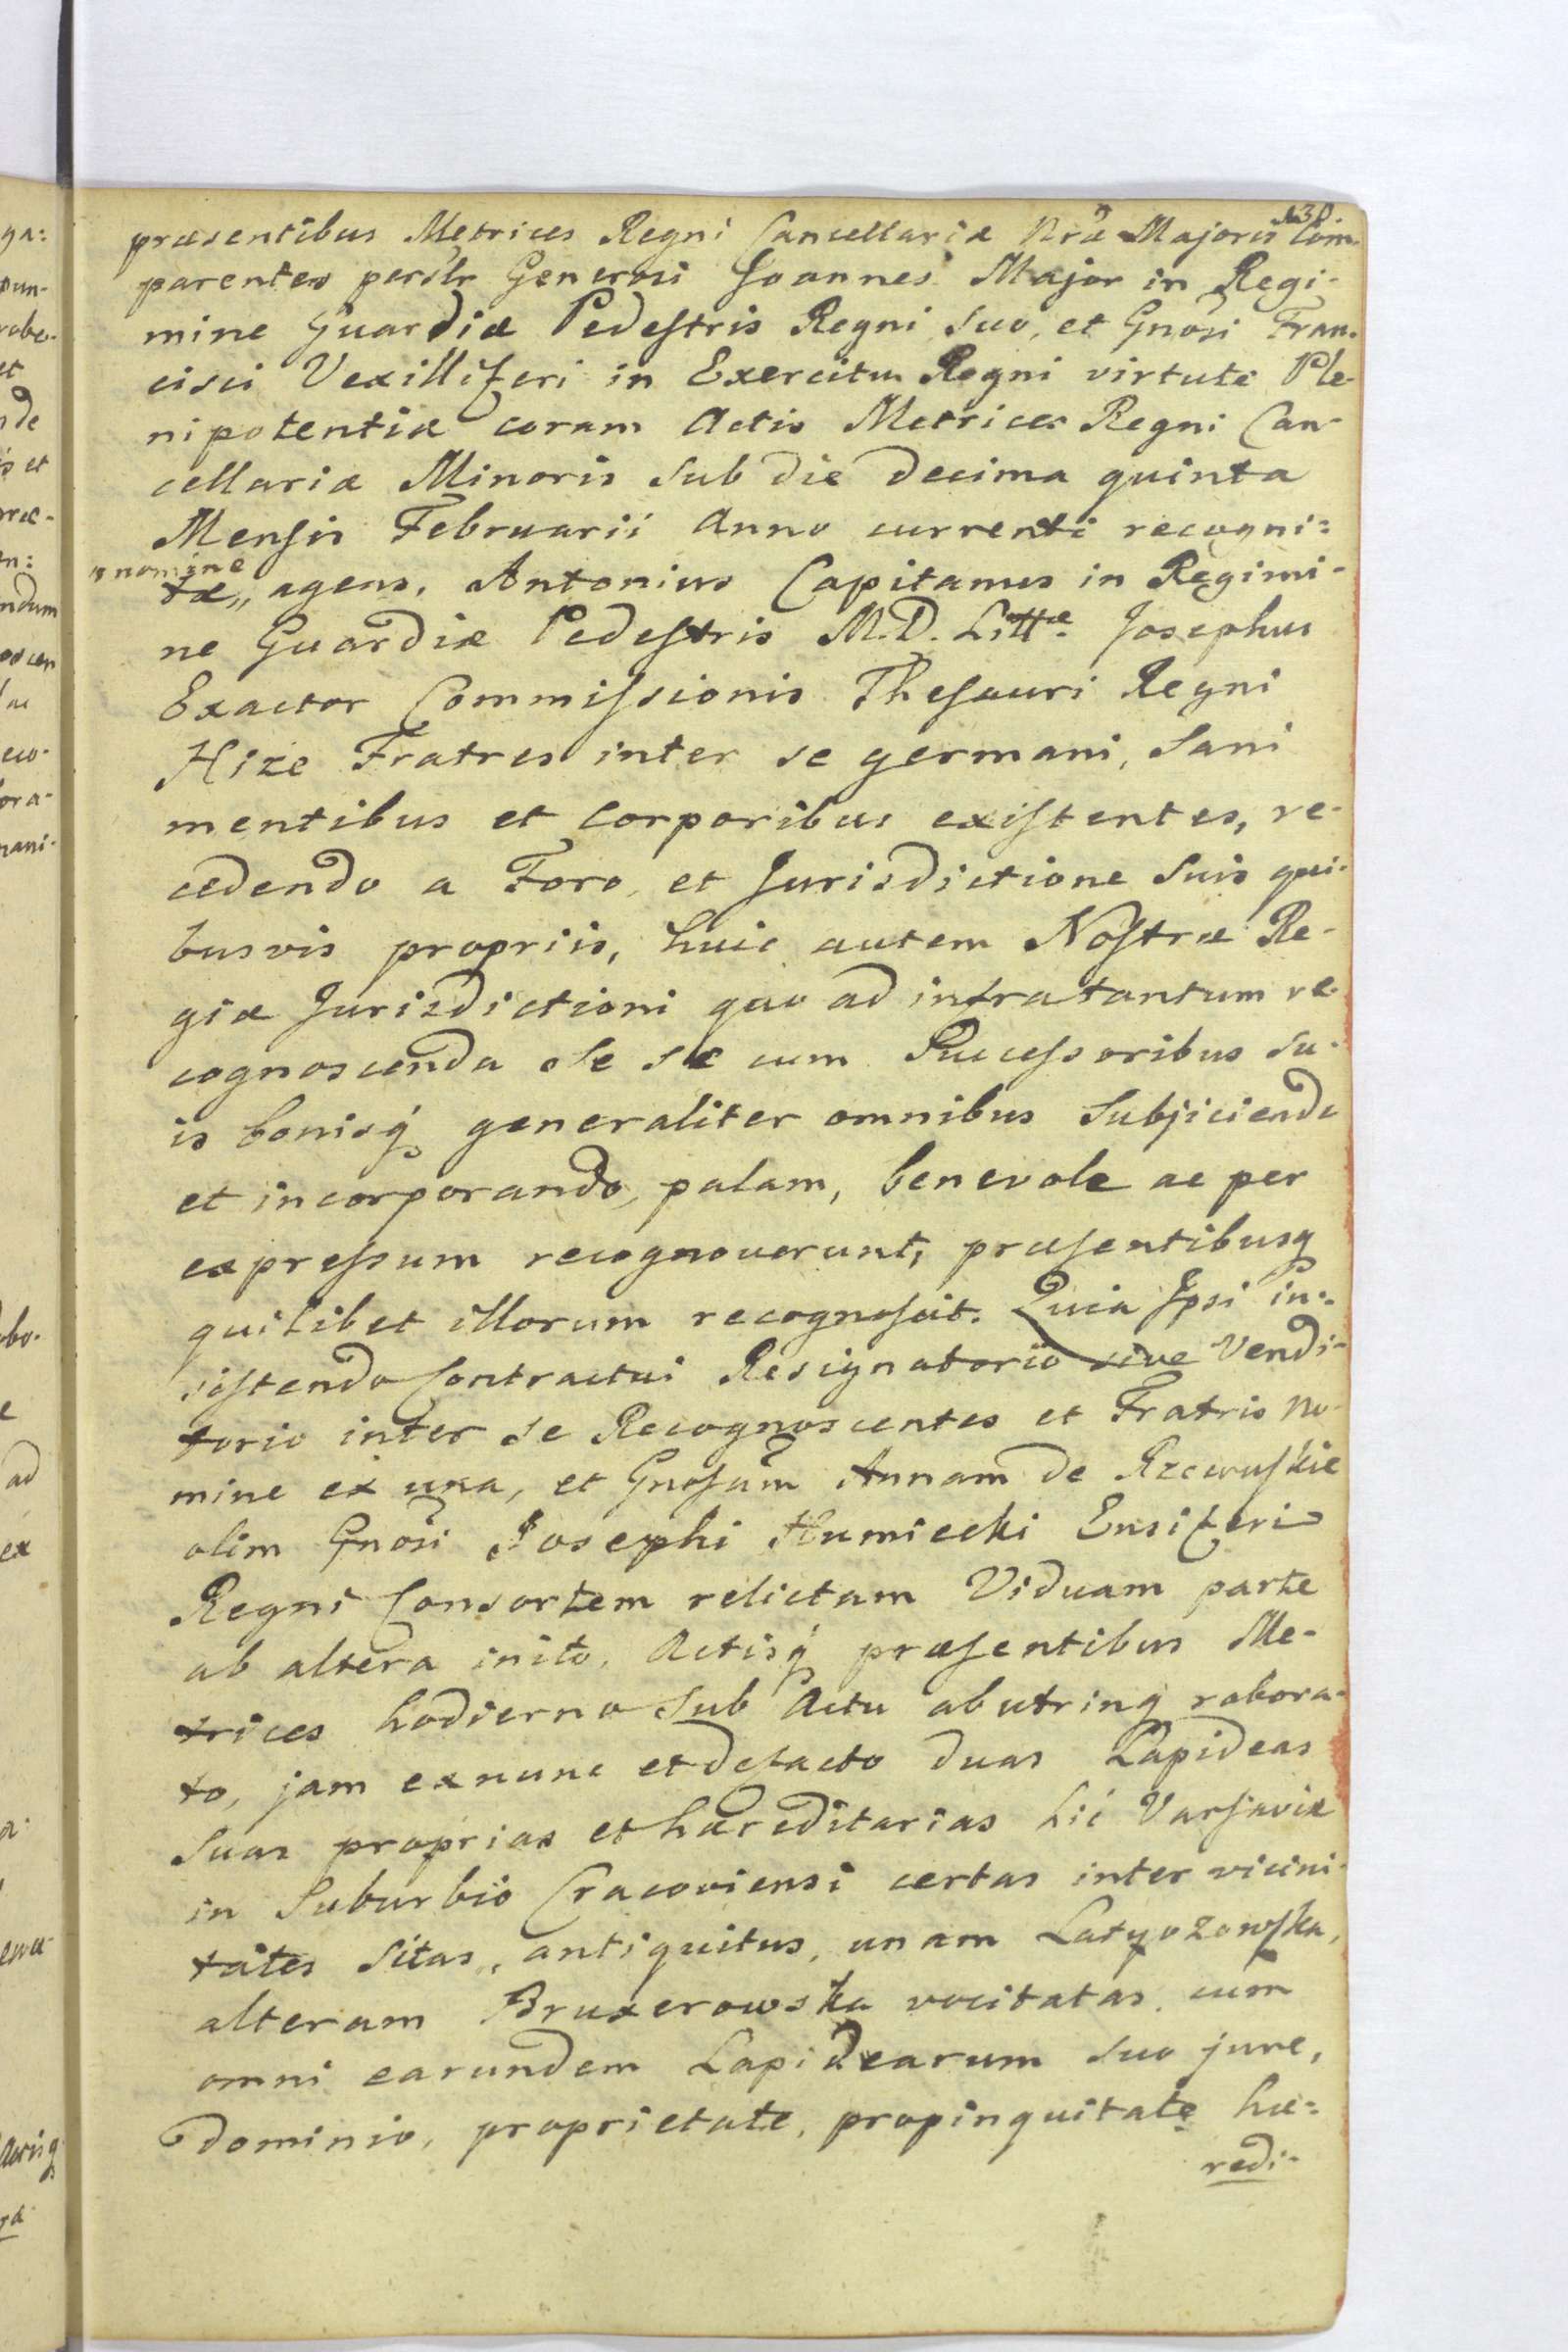 præsentibus Metrices Regni Cancellariæ Nræ Majoris Com-
parentes perslr Generosi Joannes Major in Regi-
mine Guardiæ Pedestris Regni suo, et Gnosi Fran-
cisci Vexilliferi in Exercitu Regni virtute Ple-
nipotentiæ coram Actis Metrices Regni Can-
cellariæ Minoris sub die decima quinta
Mensis Februarii Anno currenti recogni:
nomine
tæ,, agens, Antonius Capitaneus in Regimi-
ne Guardiæ Pedestris M.D. Littæ Josephus
Exactor Commissionis Thesauri Regni
Hize Fratres inter se germani, Sani
mentibus et Corporibus existentes, re-
cedendo a Foro, et Jurisdictione suis qui-
busvis propriis, huic autem Nostræ Re-
giæ Jurisdictioni quo ad infra tantum re-
cognoscenda se se cum Successoribus su-
is bonisq generaliter omnibus subjiciendo
et incorporando, palam, benevole ac per
expressum recognoverunt, præsentibusq
quilibet illorum recognoscit. Quia Ipsi in-
sistendo Contractui Resignatorio sive Vendi-
torio inter se Recognoscentes et Fratris no-
mine ex una, et Gnosam Annam de Rzewuskie
olim Gnosi Josephi Humiecki Ensiferi
Regni Consortem relictam Viduam parte
ab altera inito, Actisq præsentibus Me-
trices hodierno sub Actu ab utrinq robora-
to, jam exnunc et defacto duas Lapideas
suas proprias et hæreditarias hic Varsaviæ
in Suburbio Cracoviensi certas inter vicini-
tates sitas, antiquitus, unam
alteram Bruxerowska vocitatas, cum
omni earundem Lapidearum suo jure,
dominio, proprietate, propinquitate hæ-
redi-